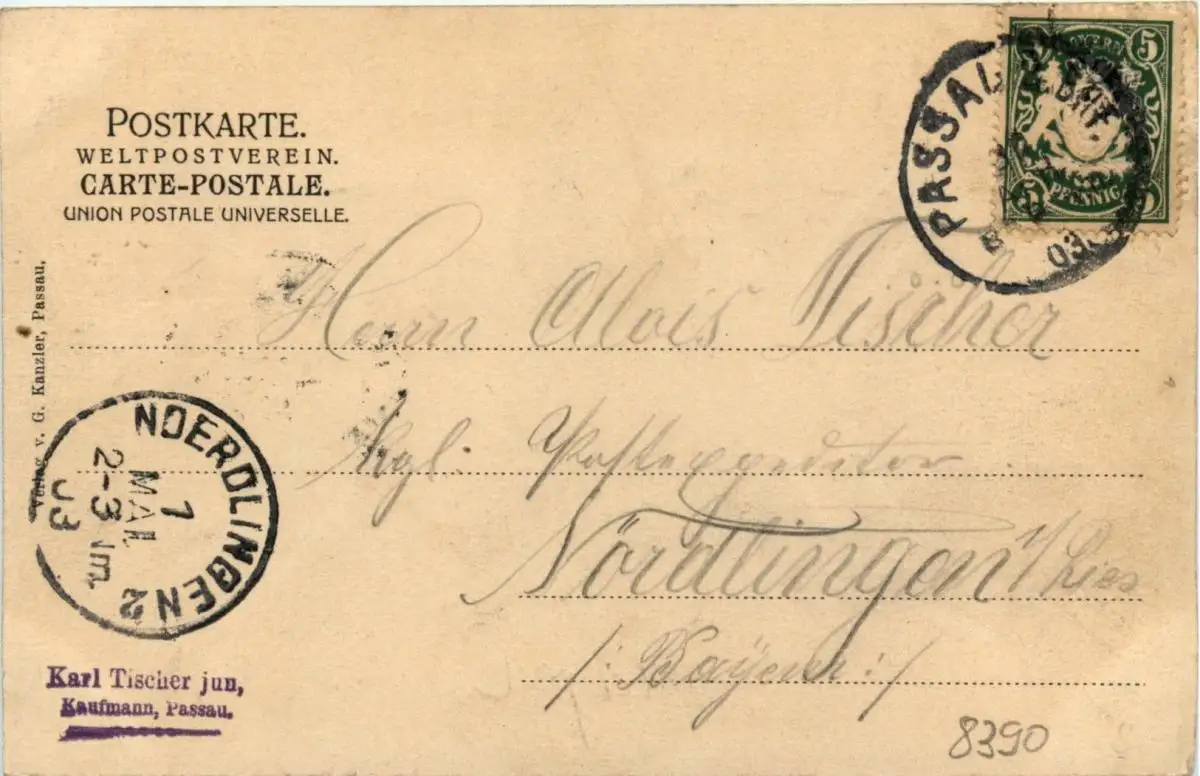 POSTKARTE.
WELTPOSTVEREIN.
CARTE-POSTALE.
UNION POSTALE UNIVERSELLE.
BAYERN
5
5
PFENNIG
PASSAU
03
Herrn Alois Tischer
Kgl. Postexpeditor
Nördlingen i/Ries
/: Bayern :/
Verlag v. G. Kanzler, Passau.
NOERDLINGEN 2
1
MAI
2-3 Nm.
03
Karl Tischer jun,
Kaufmann, Passau.
8390